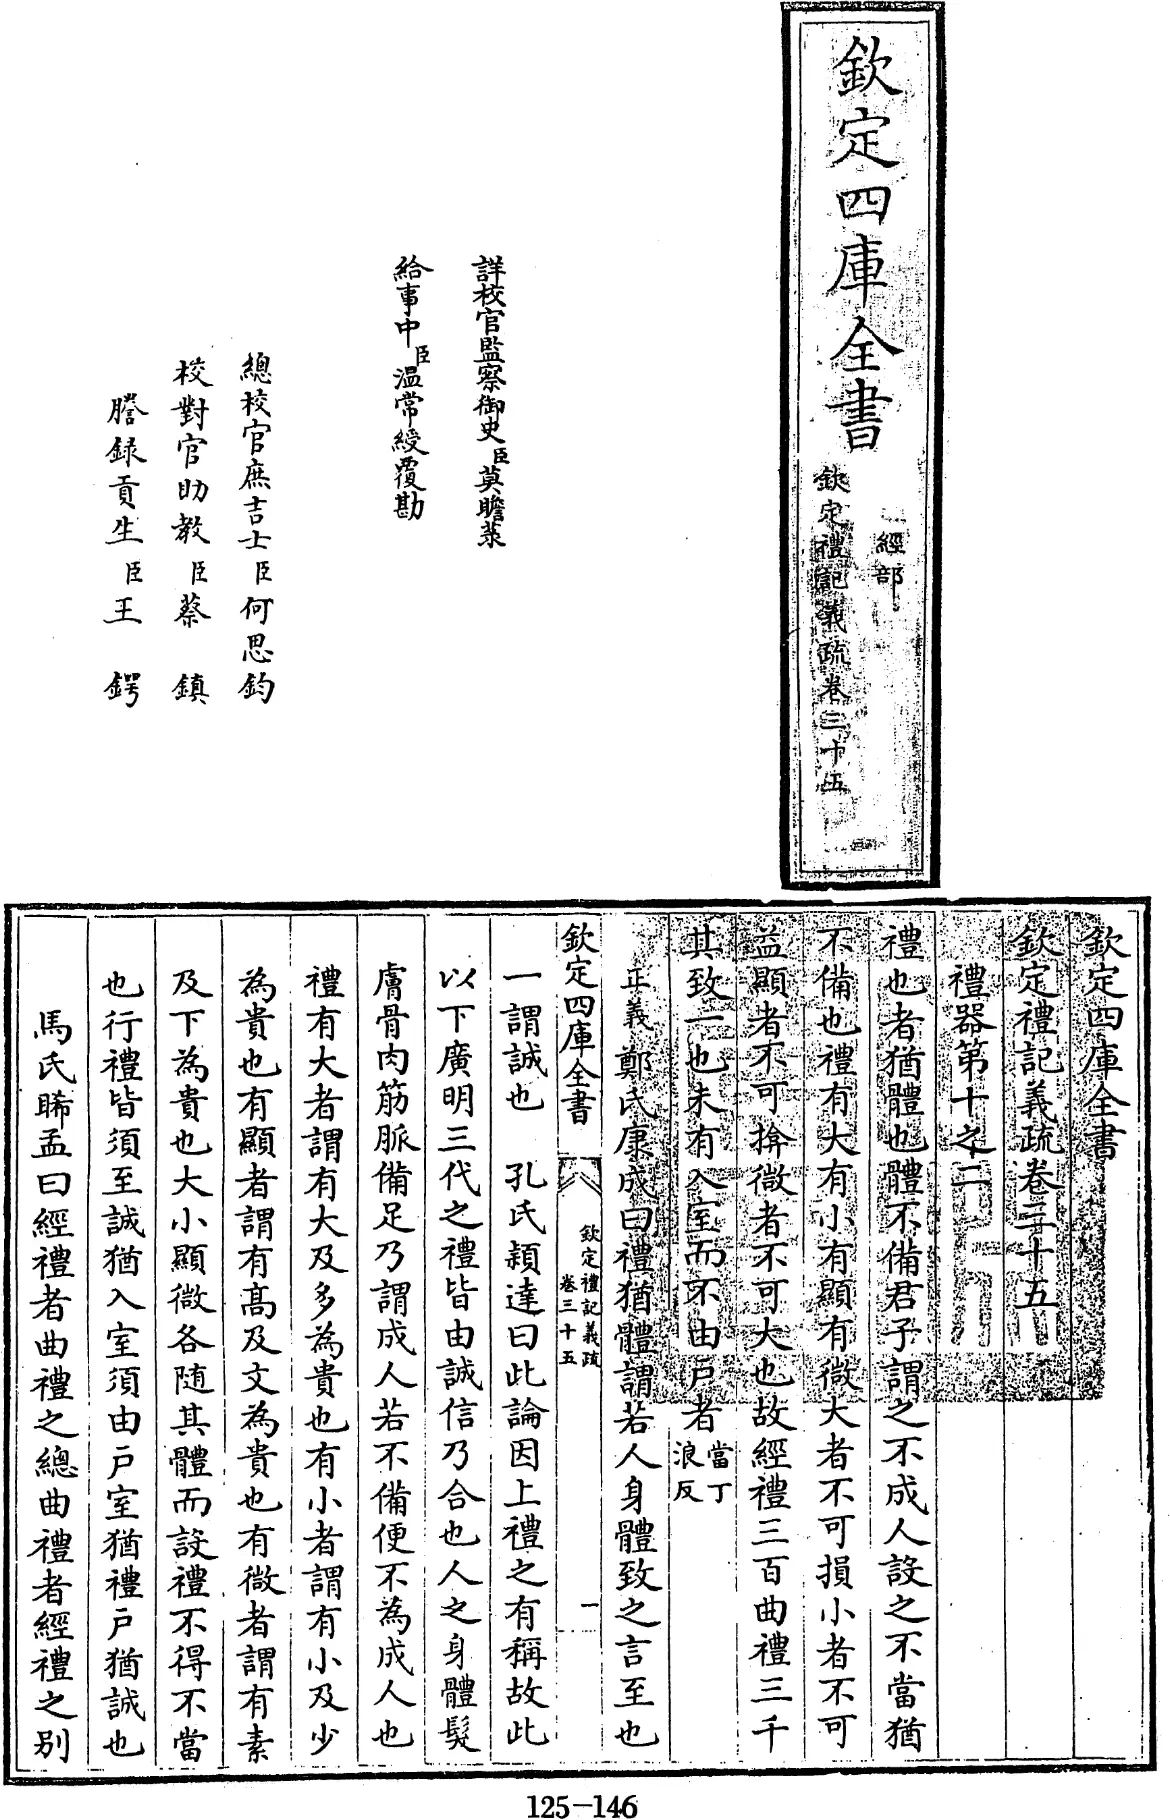 欽定四庫全書
經部
欽定禮記義疏卷三十五
詳校官監察御史臣莫瞻菉
給事中臣溫常綬覆勘
總校官庶吉士臣何思鈞
校對官助教臣蔡鎮
謄録貢生臣王鍔
欽定四庫全書
欽定禮記義疏卷三十五
禮器第十之二
禮也者猶體也體不備君子謂之不成人設之不當猶
不備也禮有大有小有顯有微大者不可損小者不可
益顯者不可揜微者不可大也故經禮三百曲禮三千
其致一也未有入室而不由戶者當丁浪反
正義鄭氏康成曰禮猶體謂若人身體致之言至也
欽定四庫全書 欽定禮記義疏 卷三十五 一
一謂誠也 孔氏穎達曰此論因上禮之有稱故此
以下廣明三代之禮皆由誠信乃合也人之身體髮
膚骨肉筋脈備足乃謂成人若不備便不為成人也
禮有大者謂有大及多為貴也有小者謂有小及少
為貴也有顯者謂有髙及文為貴也有微者謂有素
及下為貴也大小顯微各随其體而設禮不得不當
也行禮皆須至誠猶入室須由戶室猶禮戶猶誠也
馬氏睎孟曰經禮者曲禮之總曲禮者經禮之别
125-146